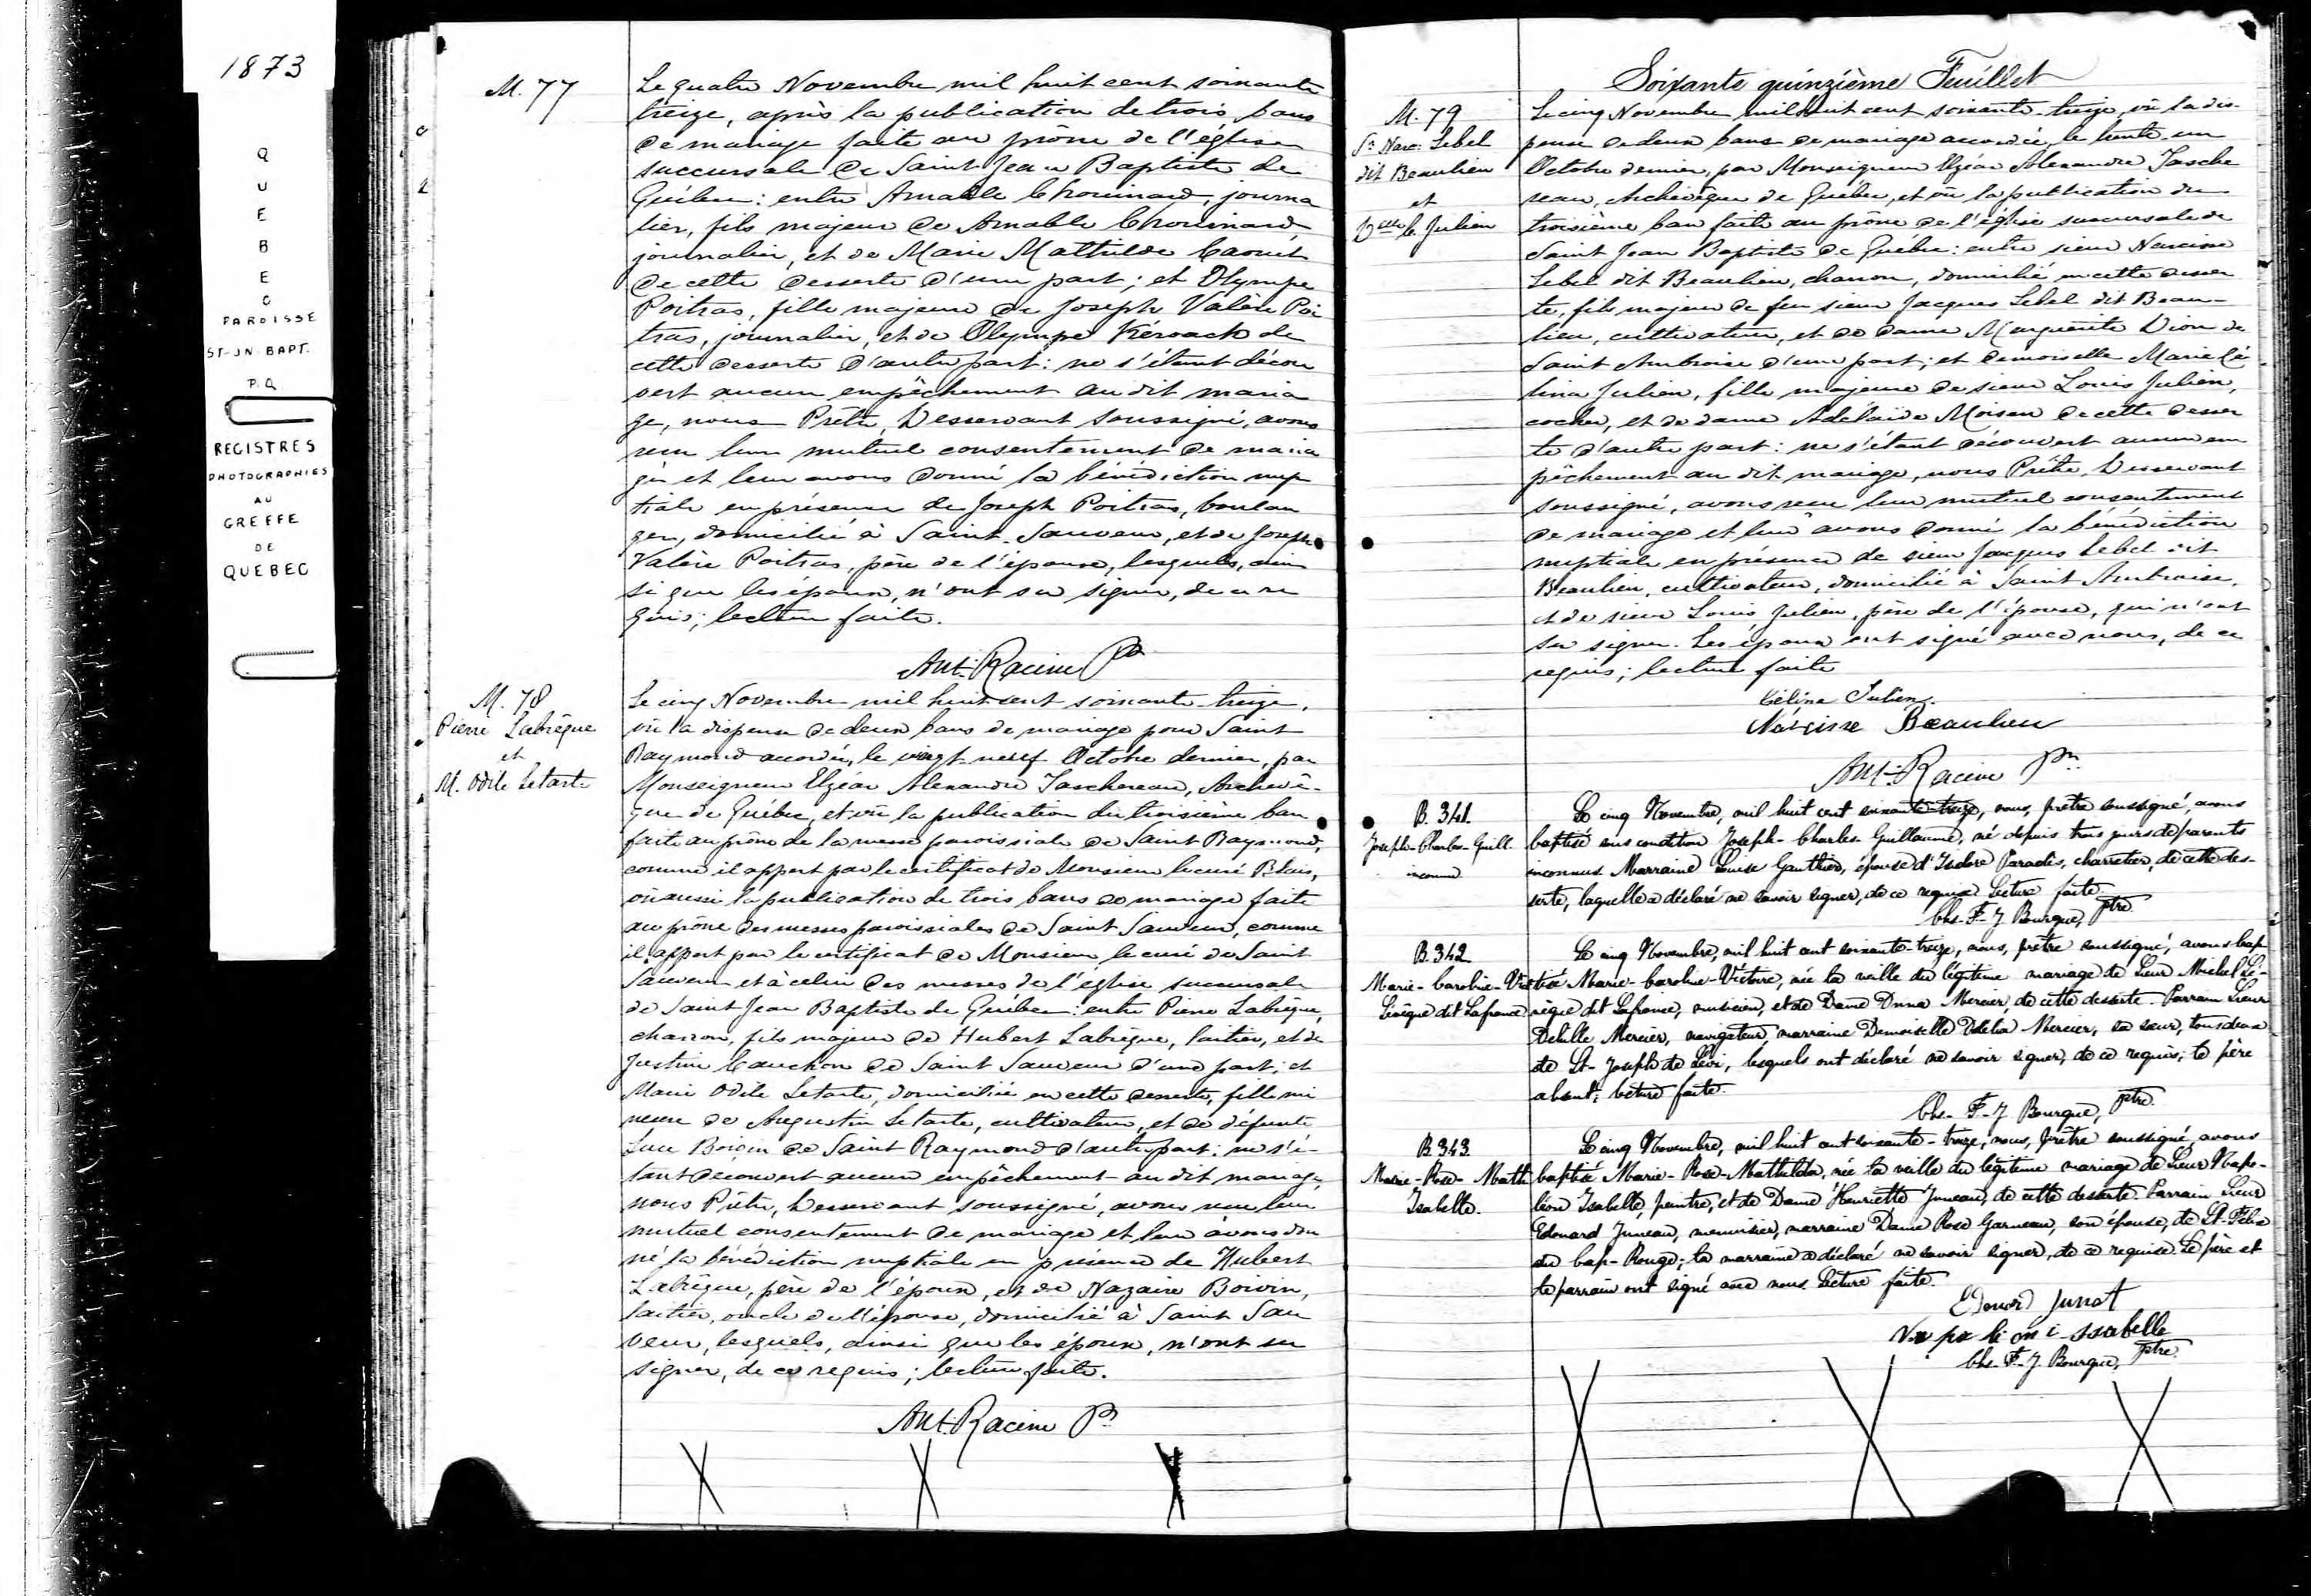 1873
QUEBEC
PAROISSE
ST-JN-BAPT.
P.Q.
REGISTRES
PHOTOGRAPHIES
AU
GREFFE
DE
QUEBEC
M. 77
Le quatre Novembre mil huit cent soixante
treize, après la publication de trois bans
de mariage faite au prône de l'église
succursale de Saint Jean Baptiste de
Québec: entre Amable Chouinard, journa
lier, fils majeur de Amable Chouinard,
journalier, et de Marie Mathilde Caouet
de cette desserte d'une part; et Olympe
Poitras, fille majeure de Joseph Valère Poi
tras, journalier, et de Olympe Kéroack de
cette desserte d'autre part: ne s'étant décou
vert aucun empêchement au dit maria
ge, nous Prêtre, Desservant soussigné, avons
reçu leur mutuel consentement de maria
ge et leur avons donné la bénédiction nup
tiale en présence de Joseph Poitras, boulan
ger, domicilié à Saint-Sauveur, et de Joseph
Valère Poitras, père de l'épouse, lesquels, ain
si que les époux, n'ont su signer, de ce re
quis; lecture faite.
Ant: Racine Ptre
M. 78
Pierre Labrèque
et
M. Odile Letarte
Le cinq Novembre mil huit cent soixante-treize,
vu la dispense de deux bans de mariage pour Saint
Raymond accordée, le vingt-neuf Octobre dernier, par
Monseigneur Elzéar Alexandre Taschereau, Archevê-
que de Québec, et vu la publication du troisième ban
faite au prône de la messe paroissiale de Saint Raymond,
comme il appert par le certificat de Monsieur le curé Blais,
vu aussi la publication de trois bans de mariage faite
au prône des messes paroissiales de Saint Sauveur, comme
il appert par le certificat de Monsieur le curé de Saint
Sauveur et à celui des messes de l'église succursale
de Saint Jean Baptiste de Québec: entre Pierre Labrèque,
charron, fils majeur de Hubert Labrèque, laitier, et de
Justine Cauchon de Saint Sauveur d'une part; et
Marie Odile Letarte, domiciliée en cette desserte, fille mi
neure de Augustin Letarte, cultivateur, et de défunte
Luce Boivin de Saint Raymond d'autre part: ne s'é-
tant découvert aucun empêchement au dit mariage,
nous Prêtre, Desservant soussigné, avons reçu leur
mutuel consentement de mariage et leur avons don
né la bénédiction nuptiale en présence de Hubert
Labrèque, père de l'époux, et de Nazaire Boivin,
laitier, oncle de l'épouse, domicilié à Saint Sau
veur, lesquels, ainsi que les époux, n'ont su
signer, de ce requis; lecture faite.
Ant: Racine Ptre
Soixante quinzième Feuillet
M. 79
Sr Narc: Lebel
dit Beaulieu
et
Delle C. Julien
Le cinq Novembre mil huit cent soixante-treize, vu la dis-
pense de deux bans de mariage accordée, le trente-un
Octobre dernier, par Monseigneur Elzéar Alexandre Tasche
reau, Archevêque de Québec, et vu la publication du
troisième ban faite au prône de l'église succursale de
Saint Jean Baptiste de Québec: entre sieur Narcisse
Lebel dit Beaulieu, charron, domicilié en cette desser
te, fils majeur de feu sieur Jacques Lebel dit Beau-
lieu, cultivateur, et de dame Marguerite Dion de
Saint Ambroise d'une part; et demoiselle Marie Cé
lina Julien, fille majeure de sieur Louis Julien,
cocher, et de dame Adélaïde Moisan de cette desser
te d'autre part: ne s'étant découvert aucun em
pêchement au dit mariage, nous Prêtre, Desservant
soussigné, avons reçu leur mutuel consentement
de mariage et leur avons donné la bénédiction
nuptiale en présence de sieur Jacques Lebel dit
Beaulieu, cultivateur, domicilié à Saint Ambroise,
et de sieur Louis Julien, père de l'épouse, qui n'ont
su signer. Les époux ont signé avec nous, de ce
requis; lecture faite
Céline Julien
Narcisse Beaulieu
Ant: Racine Ptre
B. 341.
Joseph-Charles-Guill.
inconnu
Le cinq Novembre, mil huit cent soixante-treize, nous, prêtre soussigné, avons
baptisé sous condition Joseph-Charles-Guillaume, né depuis trois jours de parents
inconnus. Marraine Louise Gauthier, épouse d'Isidore Paradis, charretier, de cette des-
serte, laquelle a déclaré ne savoir signer, de ce requise. Lecture faite.
Chs-F.-J. Bourque, Ptre
B. 342
Marie-Caroline-Vict
Levêque dit Lafrance
Le cinq Novembre, mil huit cent soixante-treize, nous, prêtre soussigné, avons bap
tisé Marie-Caroline-Victoire, née la veille du légitime mariage de Sieur Michel Lé-
vêque dit Lafrance, musicien, et de Dame Anna Mercier, de cette desserte. Parrain Sieur
Achille Mercier, navigateur, marraine Demoiselle Odélia Mercier, sa sœur, tous deux
de St-Joseph de Lévi, lesquels ont déclaré ne savoir signer, de ce requis; le père
absent; lecture faite.
Chs-F.-J. Bourque, Ptre
B. 343.
Marie-Rose-Math
Isabelle.
Le cinq Novembre, mil huit cent soixante-treize, nous, prêtre soussigné, avons
baptisé Marie-Rose-Mathilda, née la veille du légitime mariage de Sieur Napo-
léon Isabelle, peintre, et de Dame Henriette Juneau, de cette desserte. Parrain Sieur
Edouard Juneau, menuisier, marraine Dame Rose Garneau, son épouse, de St-Félix
du Cap-Rouge; la marraine a déclaré ne savoir signer, de ce requise. Le père et
le parrain ont signé avec nous. Lecture faite.
Edouard Junot
Na po li on i ssabelle
Chs-F.-J. Bourque, Ptre